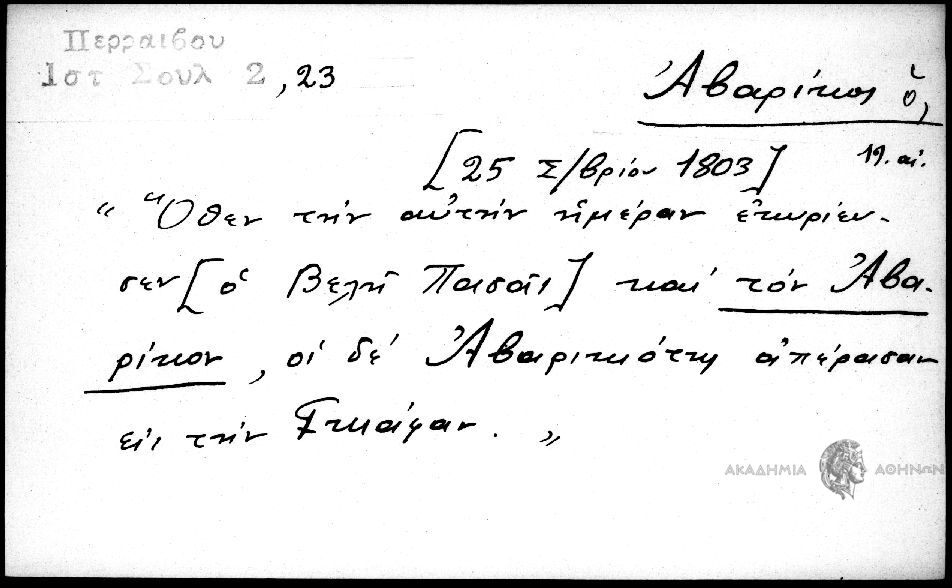 Περραιβου
Ιστ Σουλ 2, 23
Ἀβαρίκος ὁ,
[25 Σ/βρίου 1803] 19. αἰ.
" "Ὅθεν τὴν αὐτὴν ἡμέραν ἐκυρίευ-
σεν [ὁ Βελῆ Πασᾶς] καί τόν Ἀβα-
ρίκον, οἱ δέ Ἀβαρικιότες ἀπέρασαν
εἰς τὴν Γκιάφαν. "
ΑΚΑΔΗΜΙΑ ΑΘΗΝΩΝ